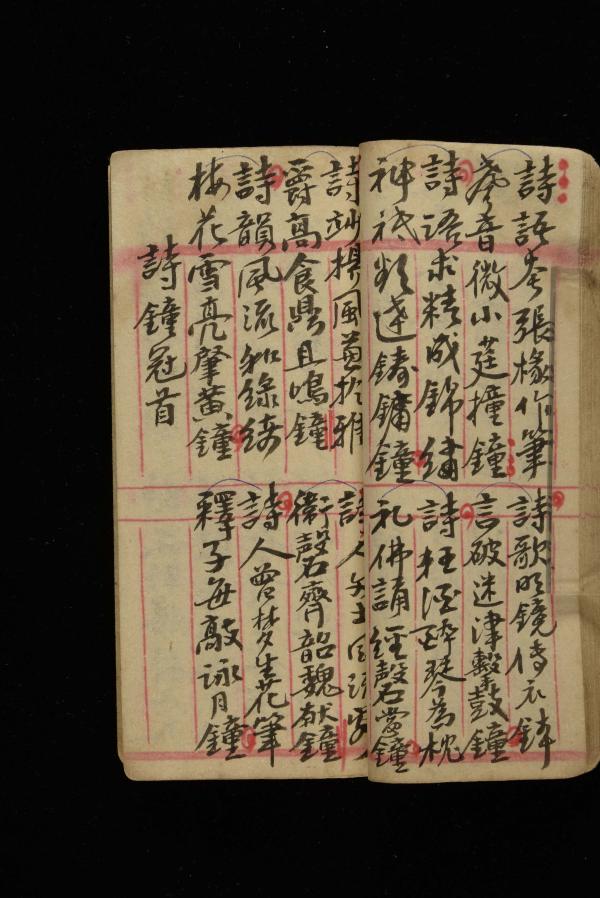 詩語夸張椽作筆
音微小莛撞鐘
詩語求精成錦繡
神祇達鑄鏞鐘
詩風於雅
爵高食鼎且鳴鐘
詩韻風流和綠綺
梅花雪亮肇黃鐘
詩鐘冠首
詩歌明鏡傳衣鉢
言破迷津擊鼓鐘
詩狂酒醉琴為枕
礼佛誦經磬當鐘
詩人
衛磬齊韶魏献鐘
詩人曾夢生花筆
釋子每敲詠月鐘